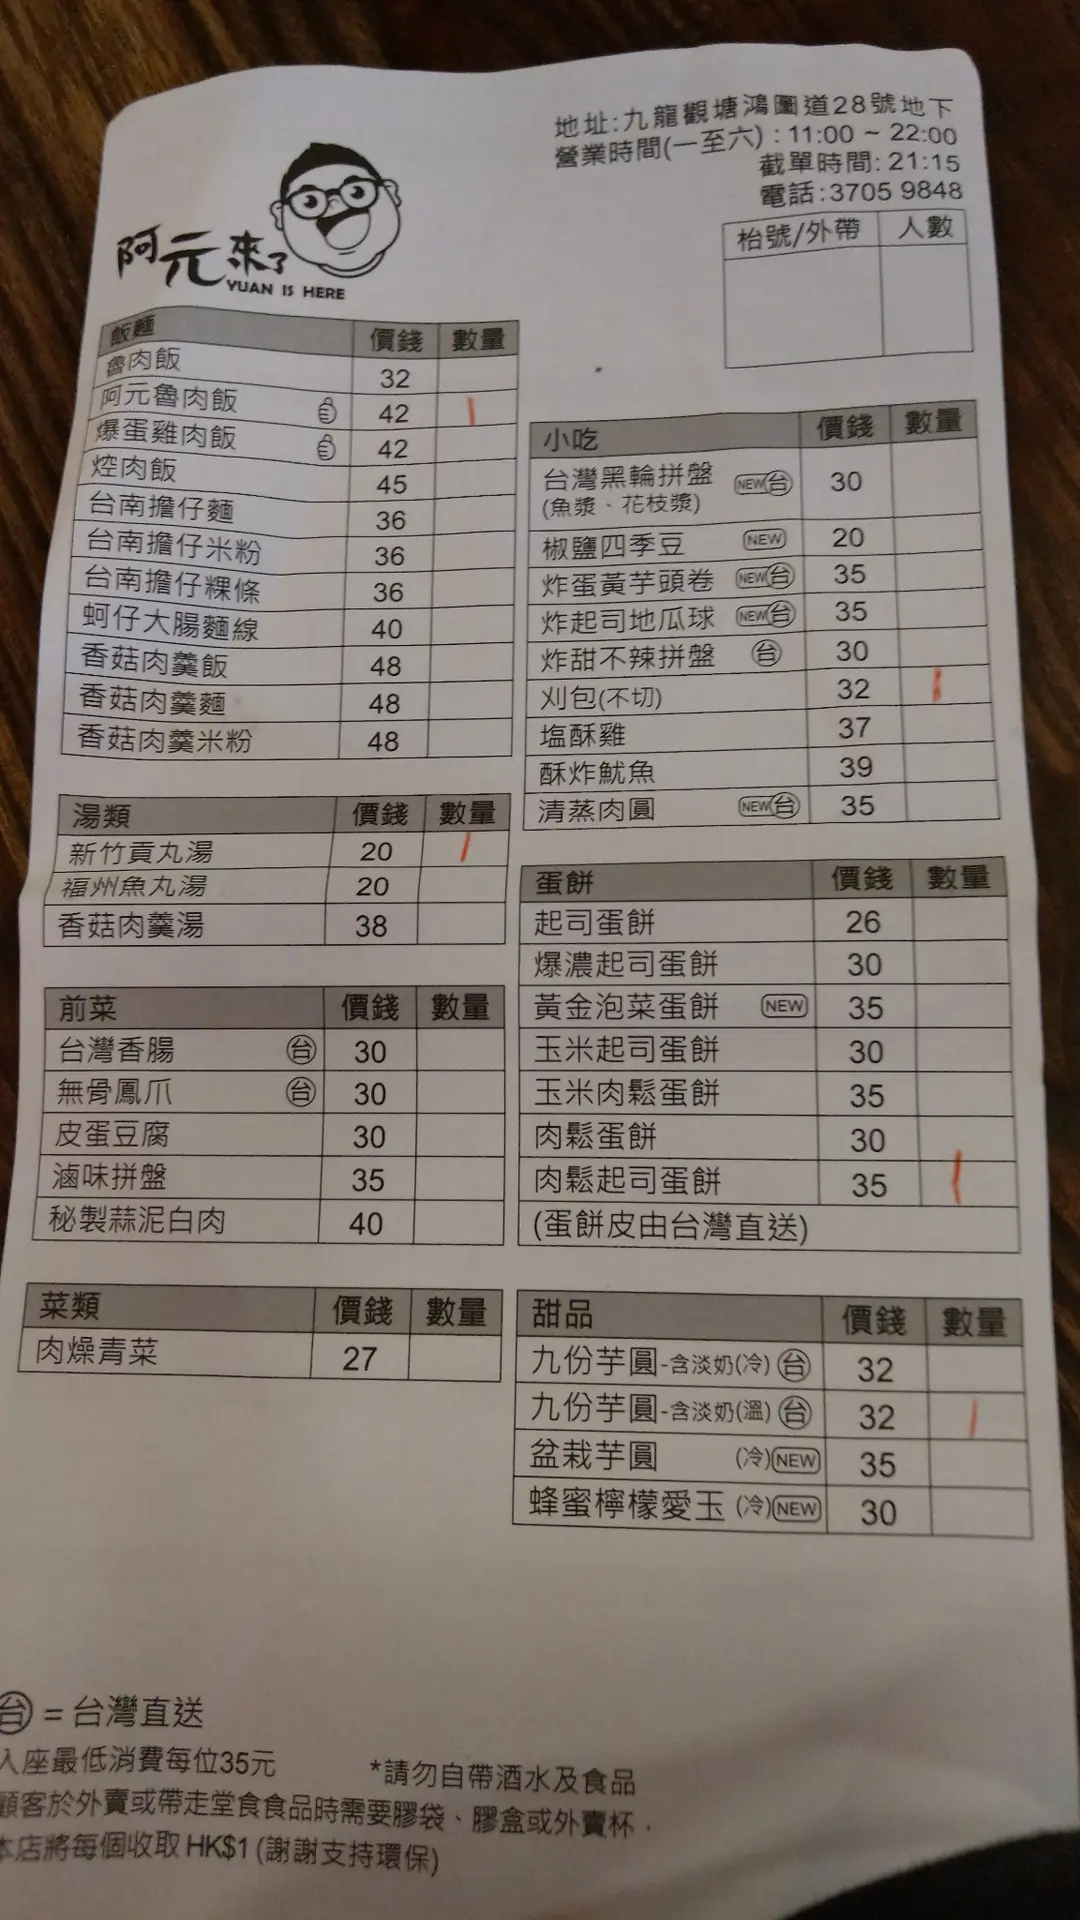 地址:九龍觀塘鴻圖道28號地下
營業時間(一至六) : 11:00 ~ 22:00
截單時間: 21:15
電話:3705 9848
枱號/外帶 人數
阿元來了
YUAN IS HERE
飯麵 價錢 數量
魯肉飯 32
阿元魯肉飯 42
爆蛋雞肉飯 42
焢肉飯 45
台南擔仔麵 36
台南擔仔米粉 36
台南擔仔粿條 36
蚵仔大腸麵線 40
香菇肉羹飯 48
香菇肉羹麵 48
香菇肉羹米粉 48
湯類 價錢 數量
新竹貢丸湯 20
福州魚丸湯 20
香菇肉羹湯 38
前菜 價錢 數量
台灣香腸 台 30
無骨鳳爪 台 30
皮蛋豆腐 30
滷味拼盤 35
秘製蒜泥白肉 40
菜類 價錢 數量
肉燥青菜 27
小吃 價錢 數量
台灣黑輪拼盤 NEW 台 30
(魚漿、花枝漿)
椒鹽四季豆 NEW 20
炸蛋黃芋頭卷 NEW 台 35
炸起司地瓜球 NEW 台 35
炸甜不辣拼盤 台 30
刈包(不切) 32
塩酥雞 37
酥炸魷魚 39
清蒸肉圓 NEW 台 35
蛋餅 價錢 數量
起司蛋餅 26
爆濃起司蛋餅 30
黃金泡菜蛋餅 NEW 35
玉米起司蛋餅 30
玉米肉鬆蛋餅 35
肉鬆蛋餅 30
肉鬆起司蛋餅 35
(蛋餅皮由台灣直送)
甜品 價錢 數量
九份芋圓-含淡奶(冷) 台 32
九份芋圓-含淡奶(溫) 台 32
盆栽芋圓 (冷) NEW 35
蜂蜜檸檬愛玉 (冷) NEW 30
台 = 台灣直送
入座最低消費每位35元 *請勿自帶酒水及食品
顧客於外賣或帶走堂食食品時需要膠袋、膠盒或外賣杯．
本店將每個收取 HK$1 (謝謝支持環保)